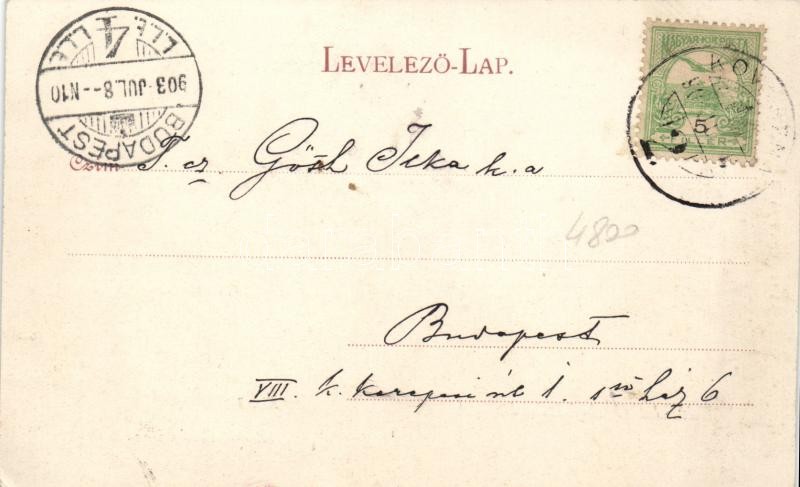 LEVELEZŐ-LAP.
MAGYAR KIR. POSTA
BUDAPEST
903 JUL. 8 -- N10
4
Czim T. cz. Göszl Ilka k. a
4800
Budapest
VIII. k. Kerepesi út 1. sz. ház 6